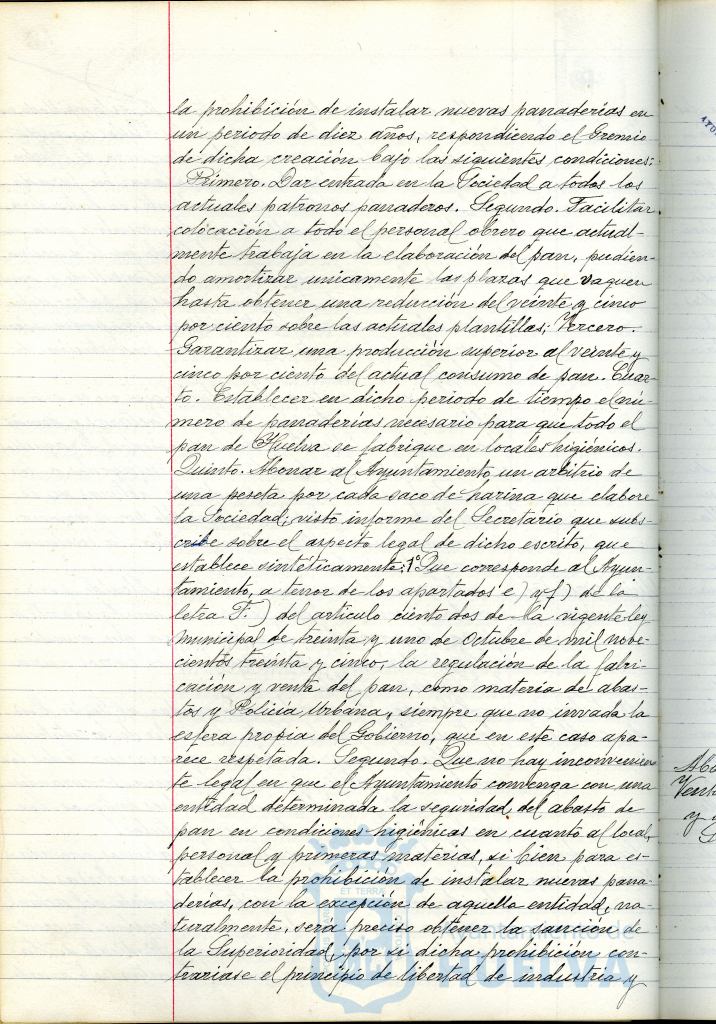 la prohibición de instalar nuevas panaderías en
un periodo de diez años, respondiendo el Gremio
de dicha creación bajo las siguientes condiciones:
Primero. Dar entrada en la Sociedad a todos los
actuales patronos panaderos. Segundo. Facilitar
colocación a todo el personal obrero que actual-
mente trabaja en la elaboración del pan, pudien-
do amortizar unicamente las plazas que vaquen
hasta obtener una reducción del veinte y cinco
por ciento sobre las actuales plantillas; Tercero.
Garantizar una producción superior al veinte y
cinco por ciento del actual consumo de pan. Cuar-
to. Establecer en dicho periodo de tiempo el nú-
mero de panaderías necesario para que todo el
pan de Huelva se fabrique en locales higiénicos.
Quinto. Abonar al Ayuntamiento un arbitrio de
una peseta por cada saco de harina que elabore
la Sociedad; visto informe del Secretario que subs-
cribe sobre el aspecto legal de dicho escrito, que
establece sintéticamente: 1º Que corresponde al Ayun-
tamiento, a tenor de los apartados e) y f) de la
letra F.) del artículo ciento dos de la vigente ley
Municipal de treinta y uno de Octubre de mil nove-
cientos treinta y cinco, la regulación de la fabri-
cación y venta del pan, como materia de abas-
tos y Policía Urbana, siempre que no invada la
esfera propia del Gobierno, que en este caso apa-
rece respetada. Segundo. Que no hay inconvenien-
te legal en que el Ayuntamiento convenga con una
entidad determinada la seguridad del abasto de
pan en condiciones higiénicas en cuanto al local,
personal y primeras materias, si bien para es-
tablecer la prohibición de instalar nuevas pana-
derías, con la excepción de aquella entidad, na-
turalmente, será preciso obtener la sanción de
la Superioridad, por si dicha prohibición con-
trariase el principio de libertad de industria y